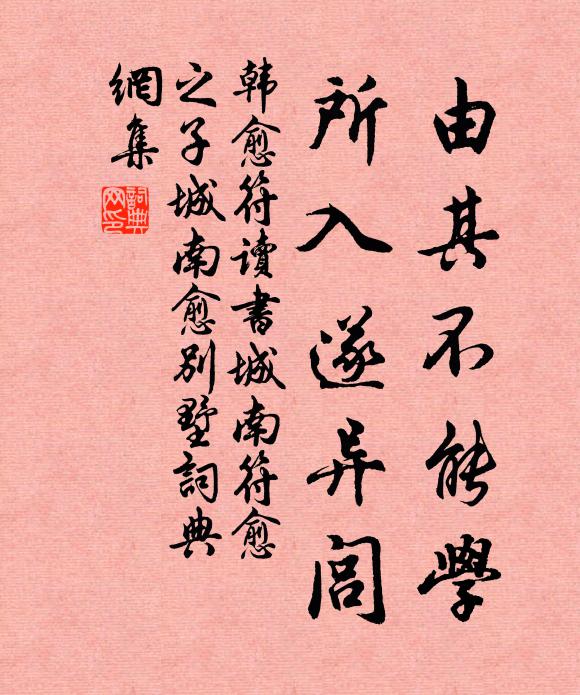 由其不能學
所入遂异閭
韩愈符讀書城南符愈
之子城南愈别墅詞典
網集
詞典
网印